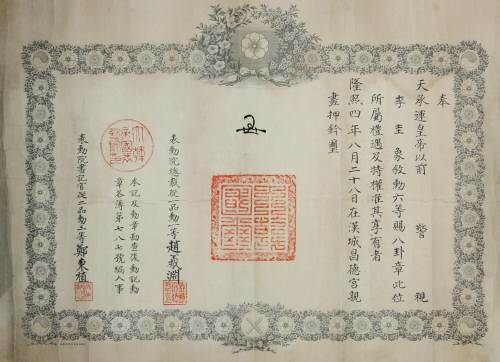 奉
天承運皇帝以前 警 視
李圭象敍勳六等賜八卦章此位
所屬禮遇及特權准其享有者
隆熙四年八月二十八日在漢城昌德宮親
畫押鈐璽
表勳院總裁從一品勳一等趙羲淵
本記及勳章勘查後勳記勳
章簿第七八七號編入事
表勳院書記官從二品勳三等鄭東植